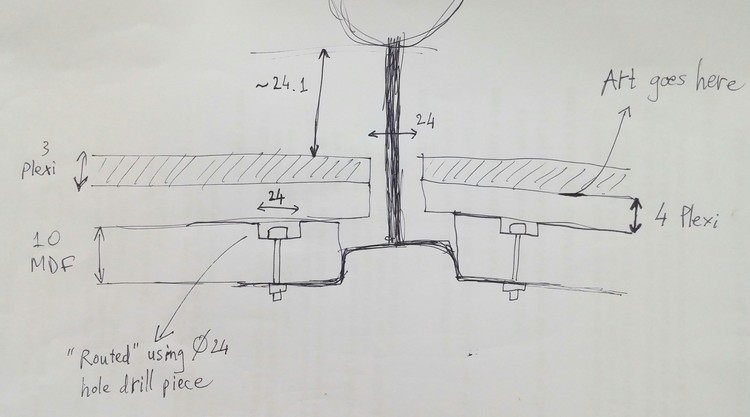 ~24.1
Art goes here
24
3
Plexi
24
4 Plexi
10
MDF
"Routed" using Ø24
hole drill piece